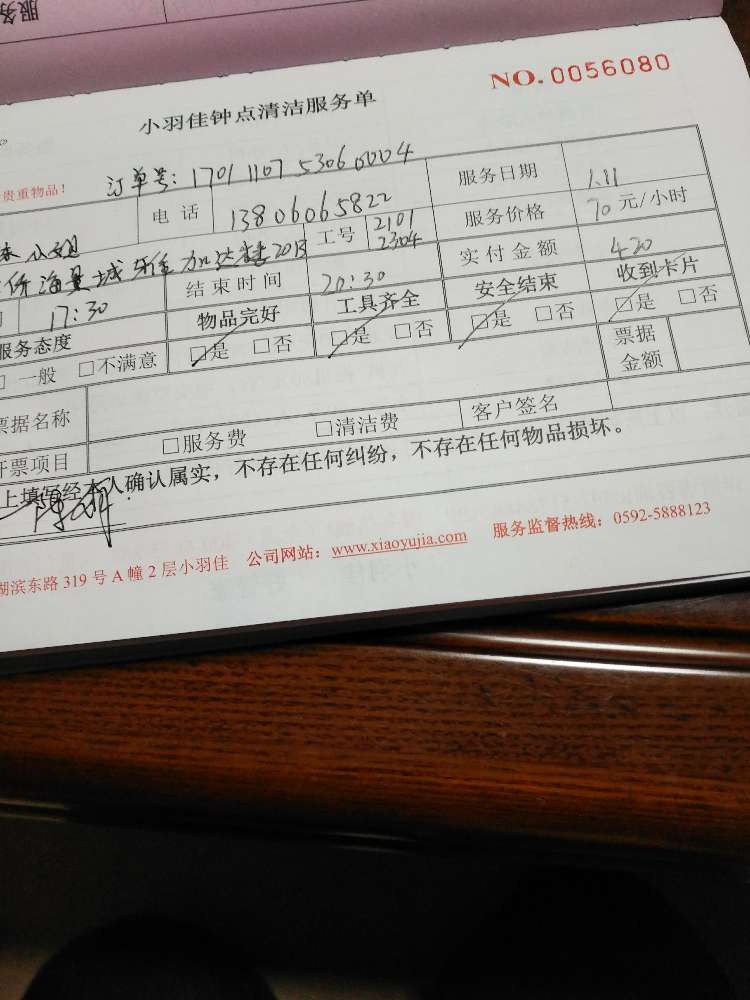 服务
NO.0056080
小羽佳钟点清洁服务单
贵重物品！
订单号：17011107 53060004
电话 13806065822 服务日期 1.11
小姐 工号 2101 2304 服务价格 70 元/小时
海景城 2013 结束时间 20:30 实付金额 420
17:30 物品完好 工具齐全 安全结束 收到卡片
服务态度 □是 □否 □是 □否 □是 □否 □是 □否
□ 一般 □不满意 票据金额
票据名称
开票项目 □服务费 □清洁费 客户签名
上填写经本人确认属实，不存在任何纠纷，不存在任何物品损坏。
湖滨东路 319 号 A 幢 2 层小羽佳 公司网站：www.xiaoyujia.com 服务监督热线：0592-5888123